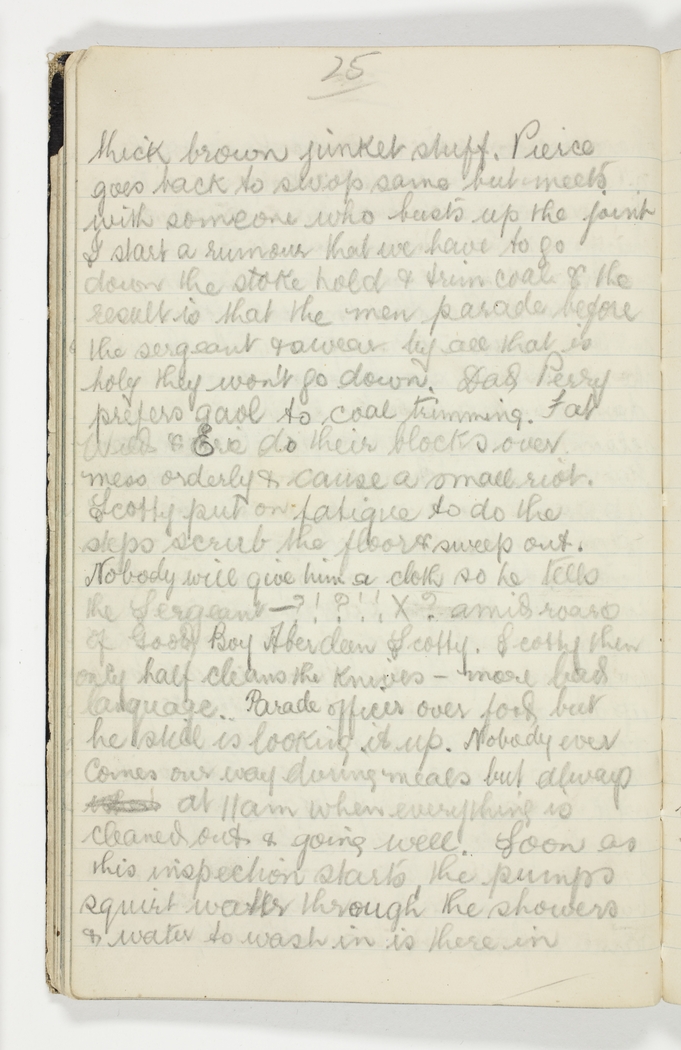 25
thick brown junket stuff. Pierce
goes back to swop same but meets
with someone who busts up the joint
I start a rumour that we have to go
down the stoke hold & trim coal & the
result is that the men parade before
the sergeant & swear by all that is
holy they won't go down. Dad Perry
prefers gaol to coal trimming. Fat
& Eric do their blocks over
mess orderly & cause a small riot.
Scotty put on fatigue to do the
steps scrub the floor & sweep out.
Nobody will give him a cloth so he tells
the Sergeant —?!?!! X? amid roars
of Good Boy Aberdeen Scotty. Scotty then
only half cleans the knives – more bad
language. Parade officer over food but
he still is looking it up. Nobody ever
comes our way during meals but always
at 11am when everything is
cleaned out & going well. Soon as
this inspection starts, the pumps
squirt water through the showers
& water to wash in is there in